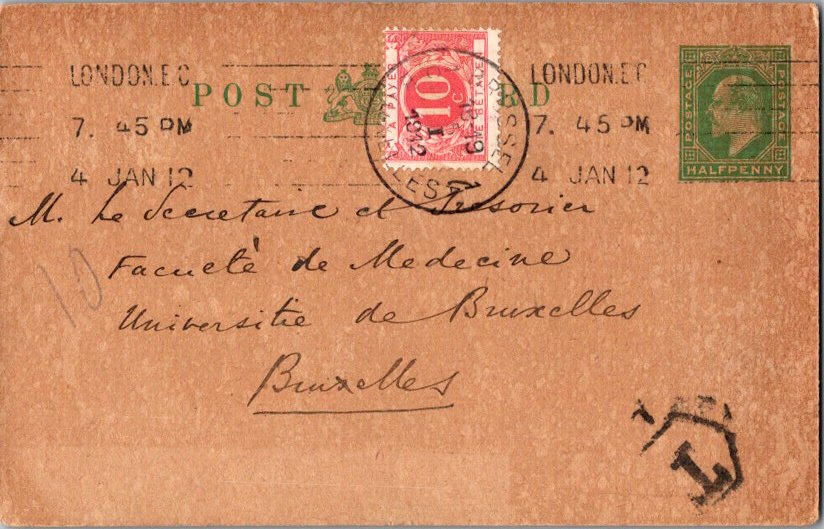 LONDON.E.C
7. 45 PM
4 JAN 12
POST RD
A PAYER
TE BETALEN
10
C
18-19
I
1912
BRUSSEL
LONDON.E.C
7. 45 PM
4 JAN 12
POSTAGE
POSTAGE
HALFPENNY
M. Le Secretaire et Tresorier
Faculté de Medecine
Universitie de Bruxelles
Bruxelles
10
T